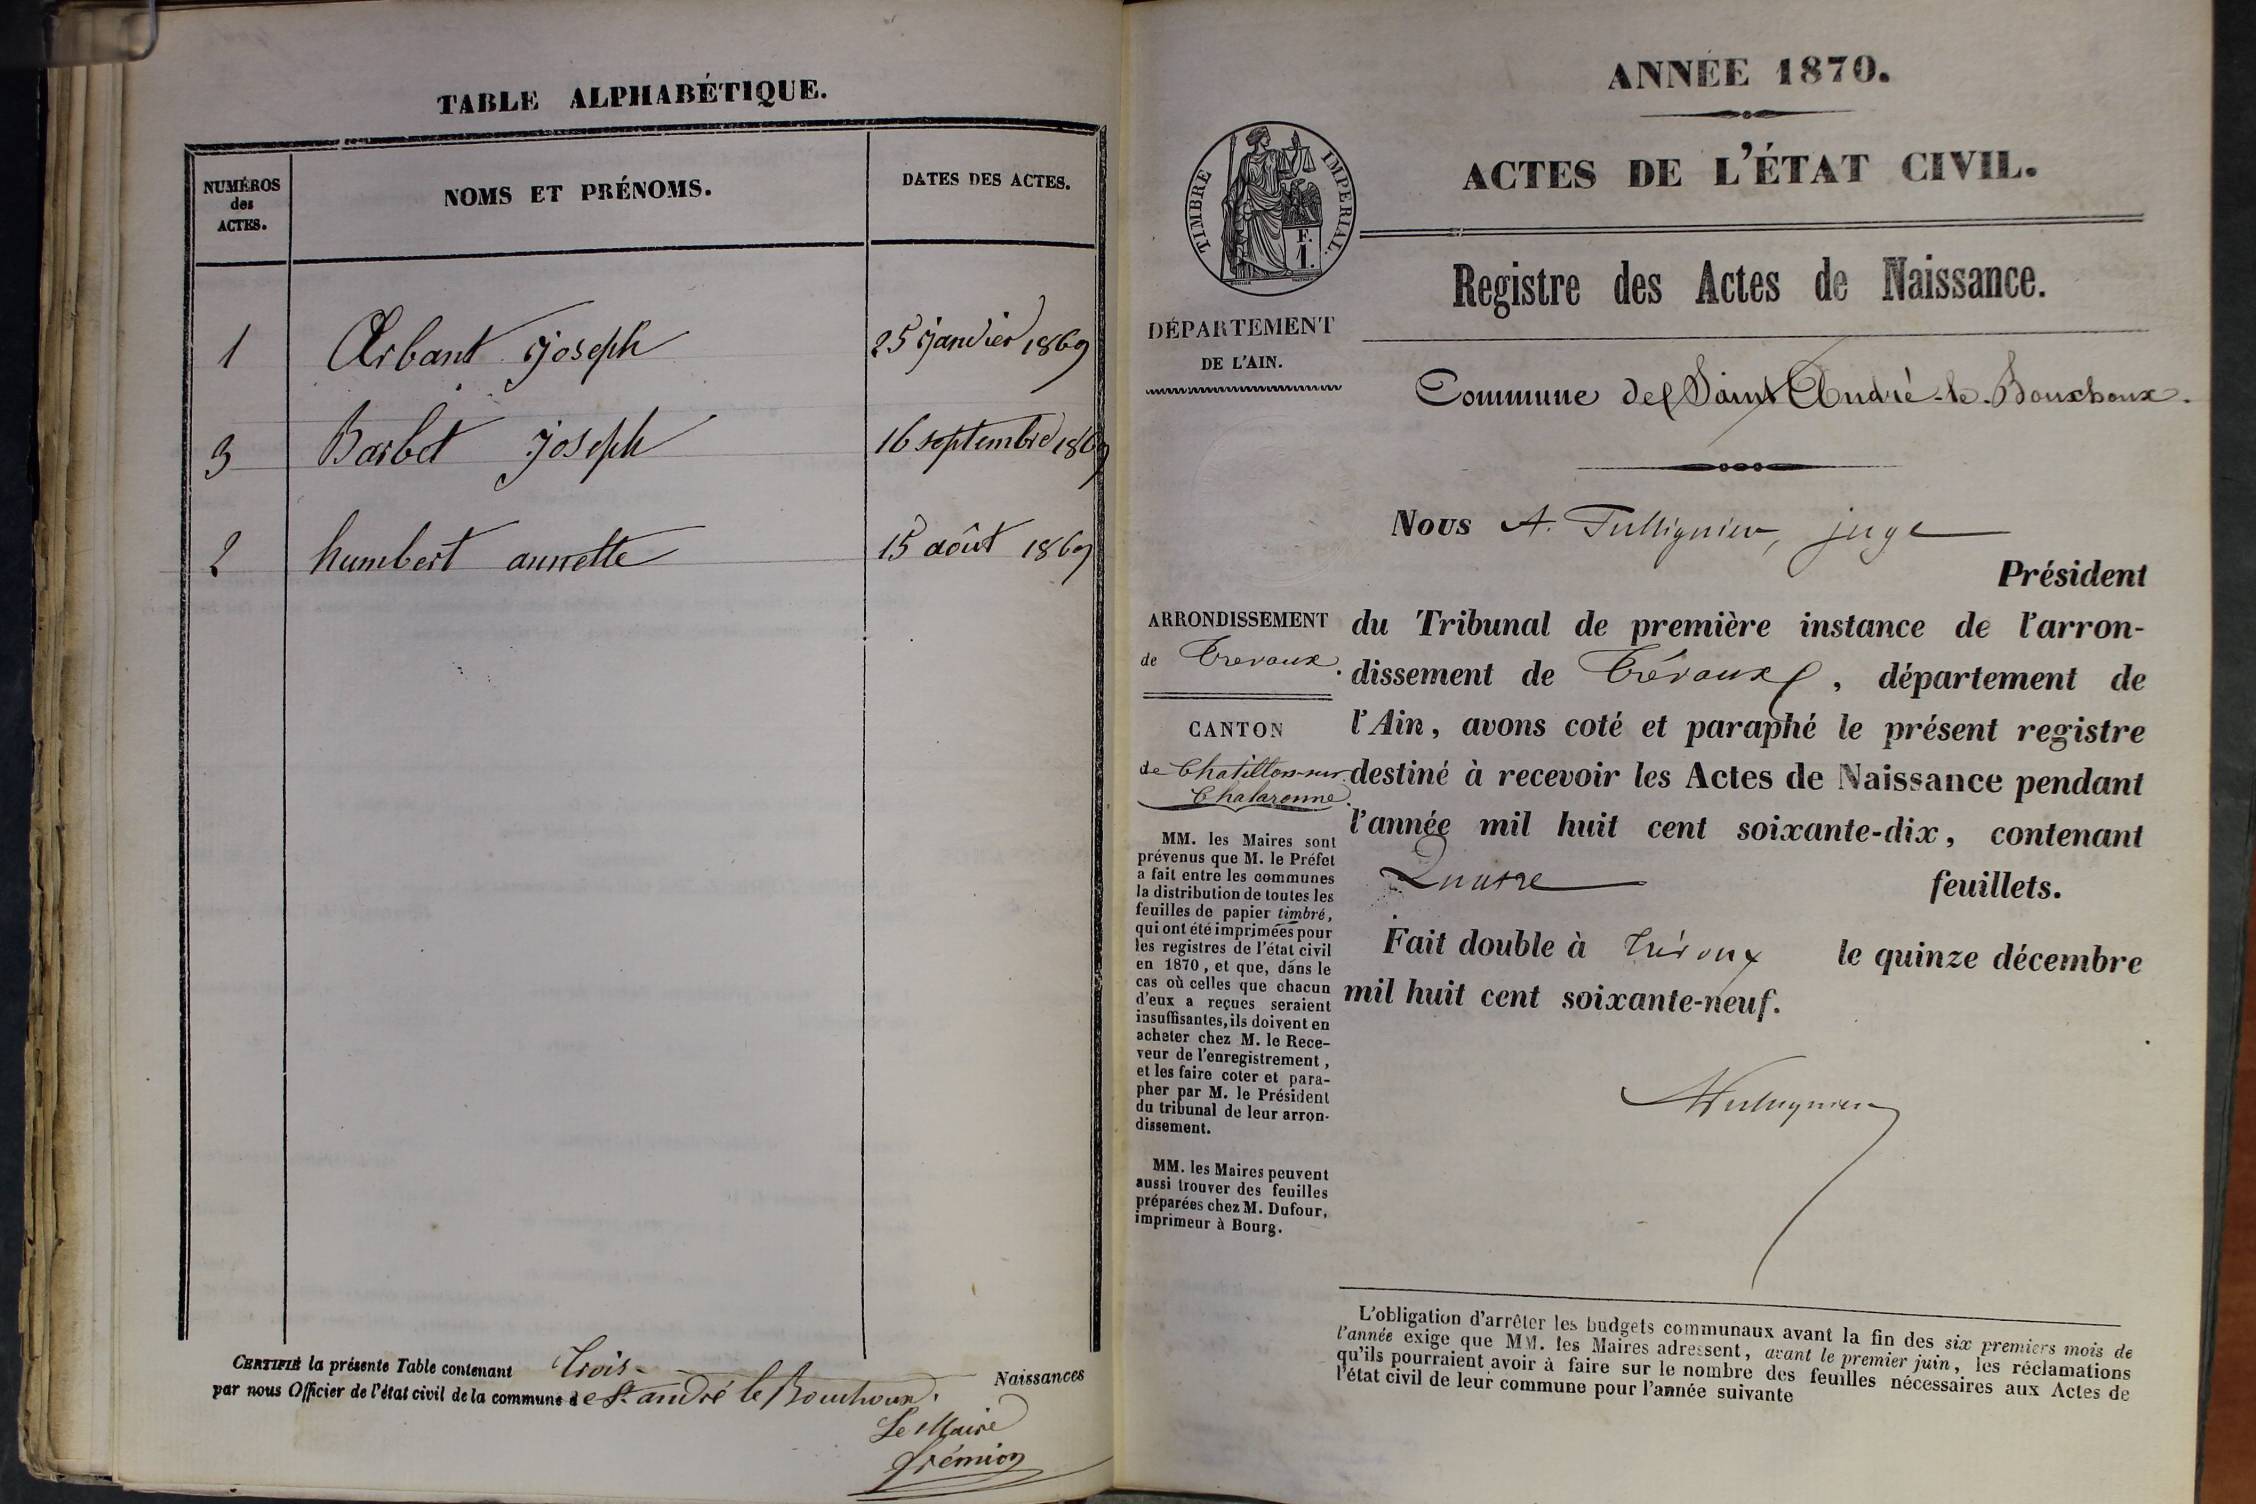 TABLE ALPHABÉTIQUE.
NUMÉROS
des
ACTES.
NOMS ET PRÉNOMS.
DATES DES ACTES.
1 Arbant joseph 25 janvier 1869
3 Barbet joseph 16 septembre 1869
2 humbert annette 15 août 1869
CERTIFIÉ la présente Table contenant trois Naissances
par nous Officier de l'état civil de la commune de St andré le Bouchoux.
Le Maire
ANNÉE 1870.
ACTES DE L'ÉTAT CIVIL.
TIMBRE IMPERIAL.
F.
1.
Registre des Actes de Naissance.
DÉPARTEMENT
DE L'AIN.
Commune de Saint André-le-Bouchoux.
Nous A. juge
Président
ARRONDISSEMENT
de Trevoux.
CANTON
de Chatillon-sur-
Chalaronne.
du Tribunal de première instance de l'arron-
dissement de Trévoux, département de
l'Ain, avons coté et paraphé le présent registre
destiné à recevoir les Actes de Naissance pendant
l'année mil huit cent soixante-dix, contenant
Quatre feuillets.
Fait double à Trévoux le quinze décembre
mil huit cent soixante-neuf.
MM. les Maires sont
prévenus que M. le Préfet
a fait entre les communes
la distribution de toutes les
feuilles de papier timbré,
qui ont été imprimées pour
les registres de l'état civil
en 1870, et que, dans le
cas où celles que chacun
d'eux a reçues seraient
insuffisantes, ils doivent en
acheter chez M. le Rece-
veur de l'enregistrement,
et les faire coter et para-
pher par M. le Président
du tribunal de leur arron-
dissement.
MM. les Maires peuvent
aussi trouver des feuilles
préparées chez M. Dufour,
imprimeur à Bourg.
L'obligation d'arrêter les budgets communaux avant la fin des six premiers mois de
l'année exige que MM. les Maires adressent, avant le premier juin, les réclamations
qu'ils pourraient avoir à faire sur le nombre des feuilles nécessaires aux Actes de
l'état civil de leur commune pour l'année suivante